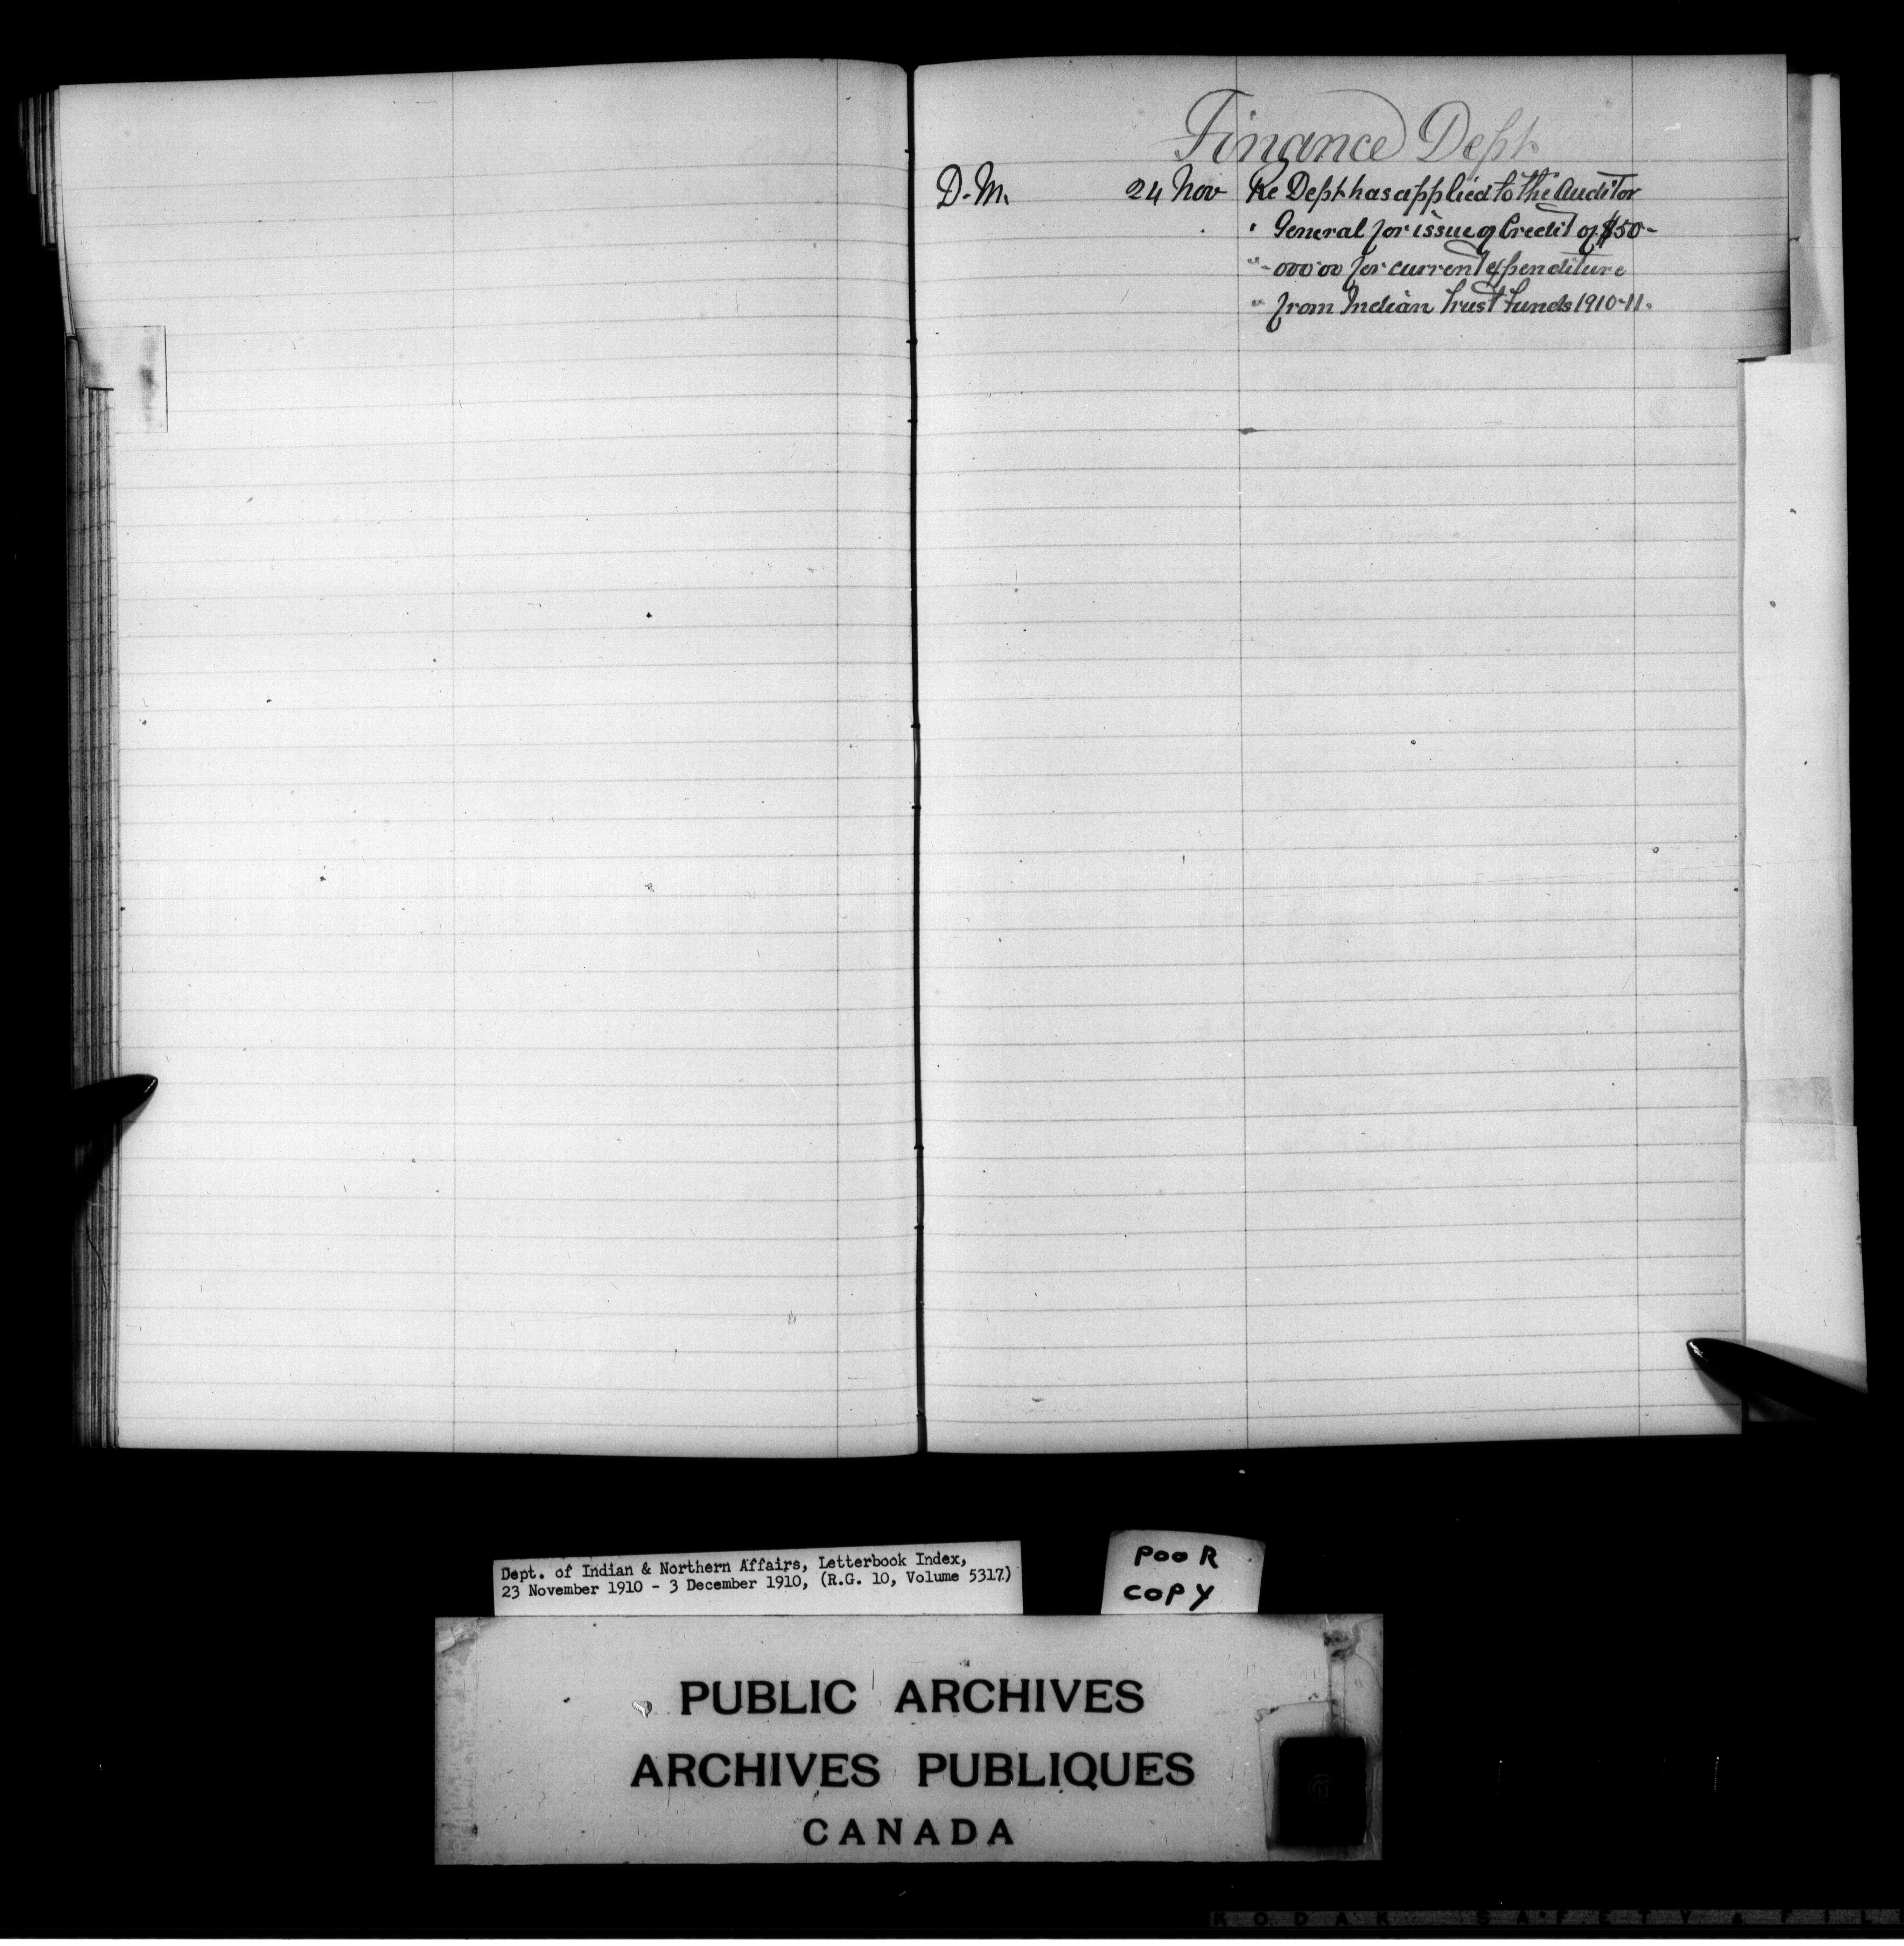 Finance Dept.
D.M. 24 Nov Re Dept. has applied to the Auditor
" General for issue of Credit of $50-
" -000.00 for current expenditure
" from Indian Trust Funds 1910-11.
Dept. of Indian & Northern Affairs, Letterbook Index,
23 November 1910 - 3 December 1910, (R.G. 10, Volume 5317)
POOR
COPY
PUBLIC ARCHIVES
ARCHIVES PUBLIQUES
CANADA
KODAK SAFETY FIL